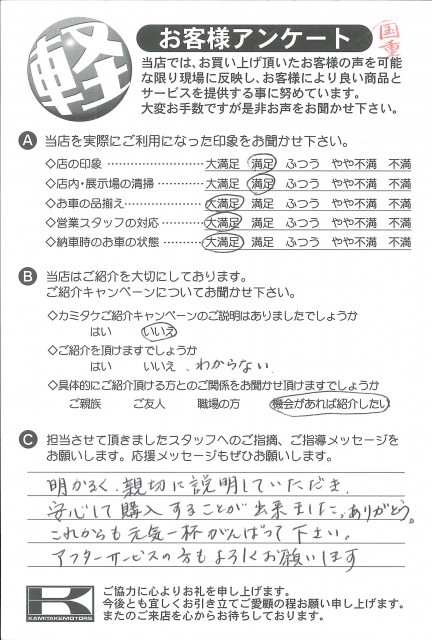 軽
お客様アンケート
国重
当店では、お買い上げ頂いたお客様の声を可能
な限り現場に反映し、お客様により良い商品と
サービスを提供する事に努めています。
大変お手数ですが是非お声をお聞かせ下さい。
A 当店を実際にご利用になった印象をお聞かせ下さい。
◇店の印象 ……………………… 大満足 満足 ふつう やや不満 不満
◇店内・展示場の清掃 ………… 大満足 満足 ふつう やや不満 不満
◇お車の品揃え ………………… 大満足 満足 ふつう やや不満 不満
◇営業スタッフの対応 ………… 大満足 満足 ふつう やや不満 不満
◇納車時のお車の状態 ………… 大満足 満足 ふつう やや不満 不満
B 当店はご紹介を大切にしております。
ご紹介キャンペーンについてお聞かせ下さい。
◇カミタケご紹介キャンペーンのご説明はありましたでしょうか
はい いいえ
◇ご紹介を頂けますでしょうか
はい いいえ、わからない
◇具体的にご紹介頂ける方とのご関係をお聞かせ頂けますでしょうか
ご親族 ご友人 職場の方 機会があれば紹介したい
C 担当させて頂きましたスタッフへのご指摘、ご指導メッセージを
お願いします。応援メッセージもぜひお願いします。
明かるく、親切に説明していただき、
安心して購入することが出来ました。ありがとう。
これからも元気一杯がんばって下さい。
アフターサービスの方もよろしくお願いします
K
KAMITAKEMOTORS
ご協力に心よりお礼を申し上げます。
今後とも宜しくお引き立てご愛顧の程お願い申し上げます。
またのご来店を心からお待ちしております。